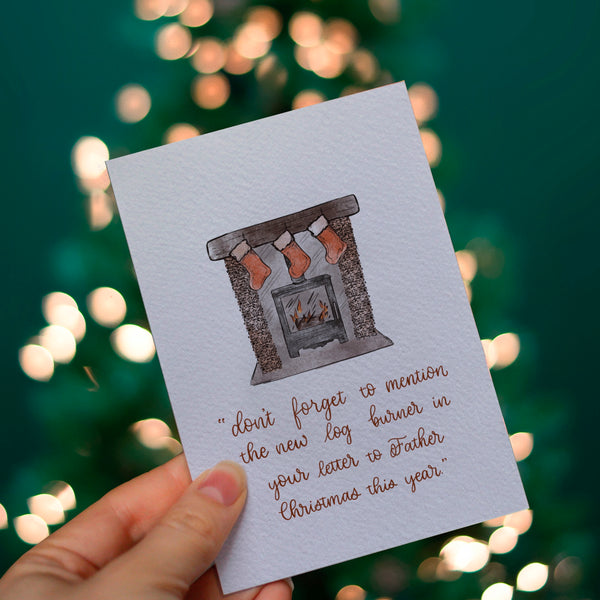 "don't forget to mention
the new log burner in
your letter to Father
Christmas this year."